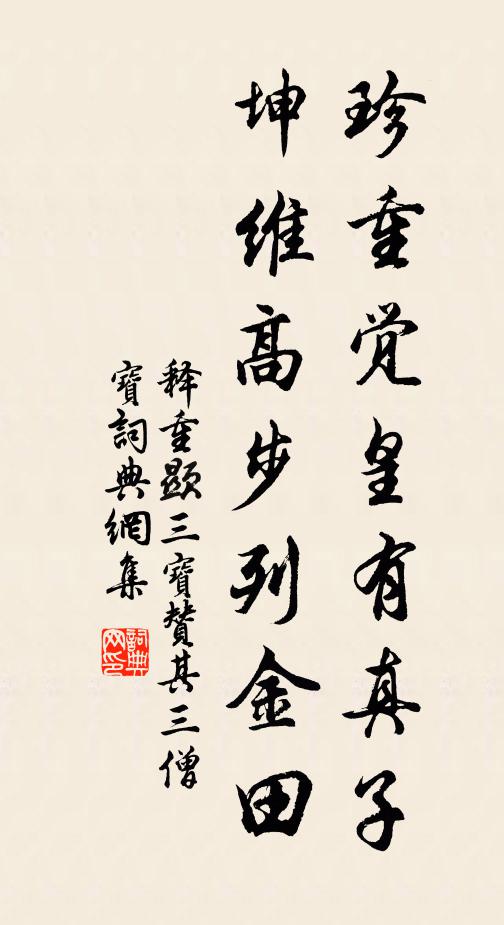 珍重觉皇有真子
坤维高步列金田
释重顯三寶赞其三僧
寶詞典網集
詞典网印